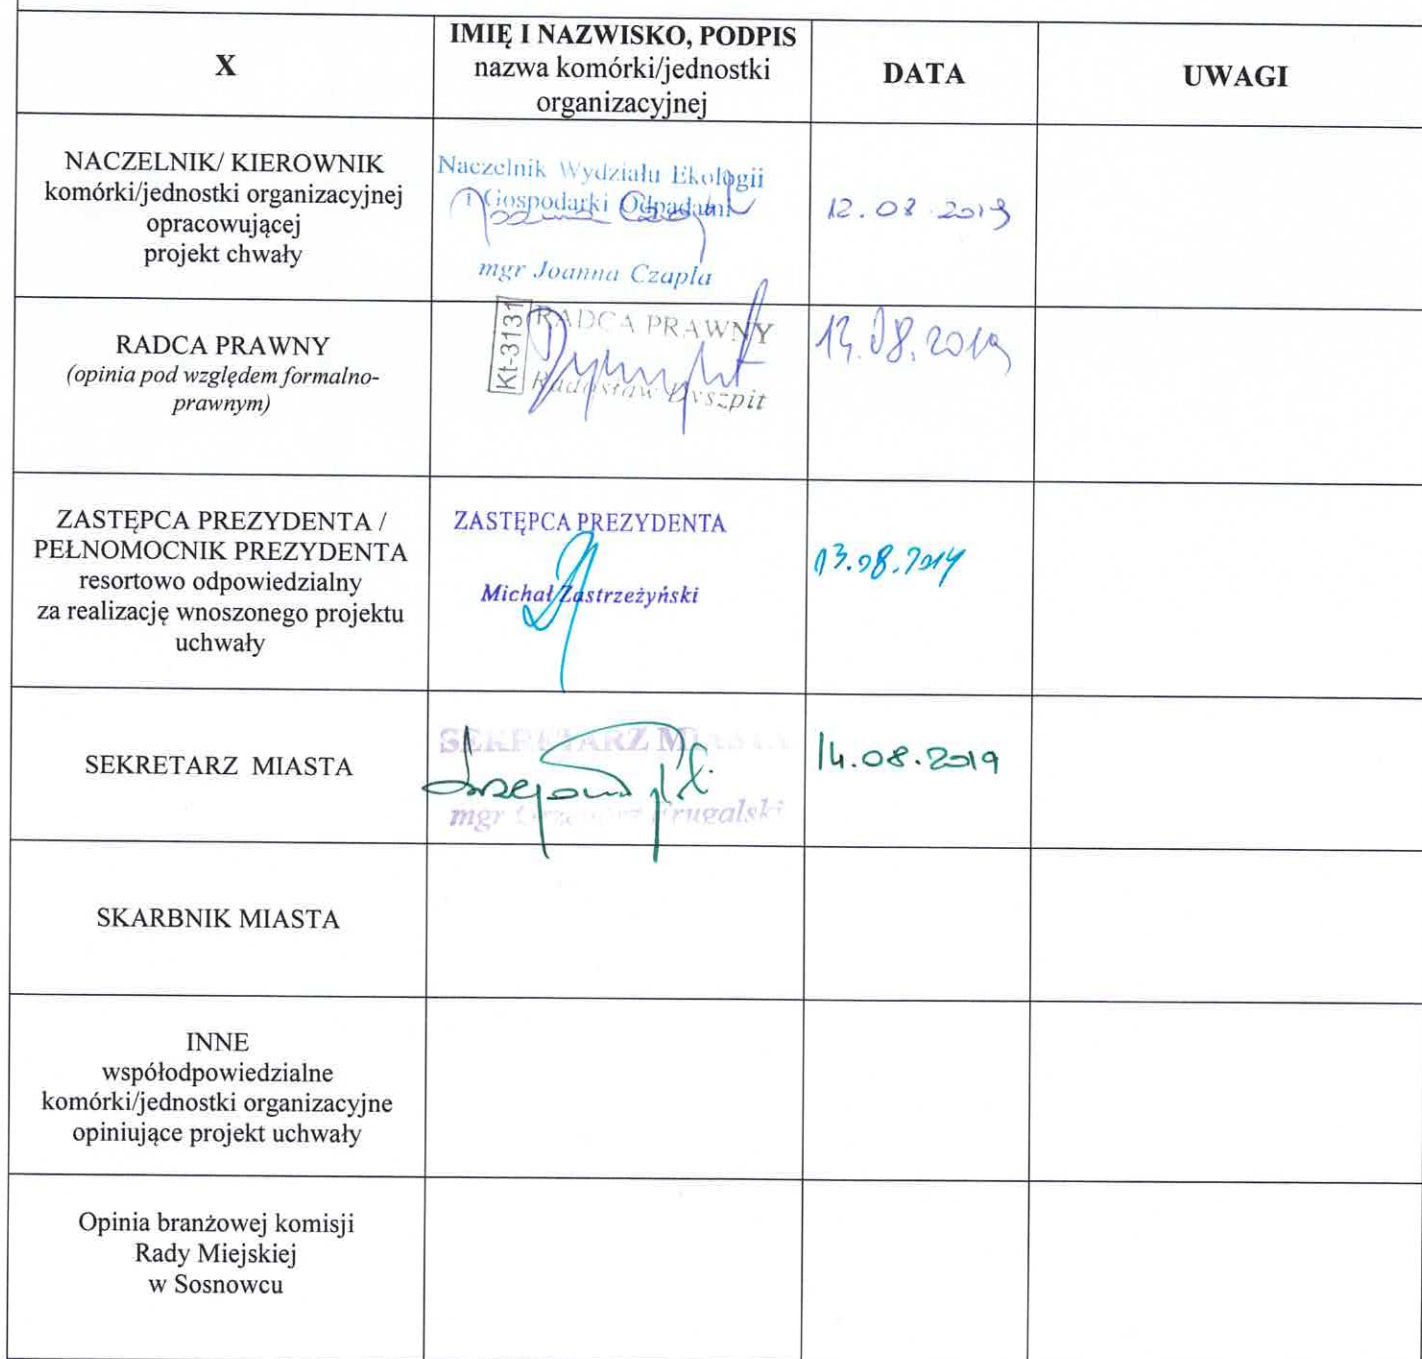 X
IMIĘ I NAZWISKO, PODPIS
nazwa komórki/jednostki
organizacyjnej
DATA
UWAGI
NACZELNIK/ KIEROWNIK
komórki/jednostki organizacyjnej
opracowującej
projekt chwały
Naczelnik Wydziału Ekologii
i Gospodarki Odpadami
mgr Joanna Czapla
12.08.2019
RADCA PRAWNY
(opinia pod względem formalno-
prawnym)
Kt-3131
RADCA PRAWNY
Radosław Dyszpit
.08.2019
ZASTĘPCA PREZYDENTA /
PEŁNOMOCNIK PREZYDENTA
resortowo odpowiedzialny
za realizację wnoszonego projektu
uchwały
ZASTĘPCA PREZYDENTA
Michał Zastrzeżyński
13.08.2019
SEKRETARZ MIASTA
SEKRETARZ MIASTA
mgr
14.08.2019
SKARBNIK MIASTA
INNE
współodpowiedzialne
komórki/jednostki organizacyjne
opiniujące projekt uchwały
Opinia branżowej komisji
Rady Miejskiej
w Sosnowcu